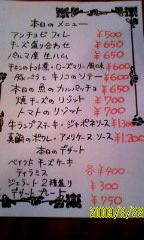 本日のメニュー
アンチョビフレ ¥500
チーズ盛り合わせ ¥650
パルマ産 生ハム ¥650
チキントマト煮・ローズマリー風味 ¥600
キノコのソテー ¥600
本日の魚のカルパッチョ ¥650
焼チーズのリゾット ¥700
トマトのリゾット ¥700
牛ランプステーキ・ジャポネソース ¥1300
真鯛のポワレ・アメリケーヌソース ¥1,200
本日のデザート
ベイクドチーズケーキ
ティラミス 各¥400
ジェラート2種盛り ¥300
デザートプレート ¥750
2009/8/22